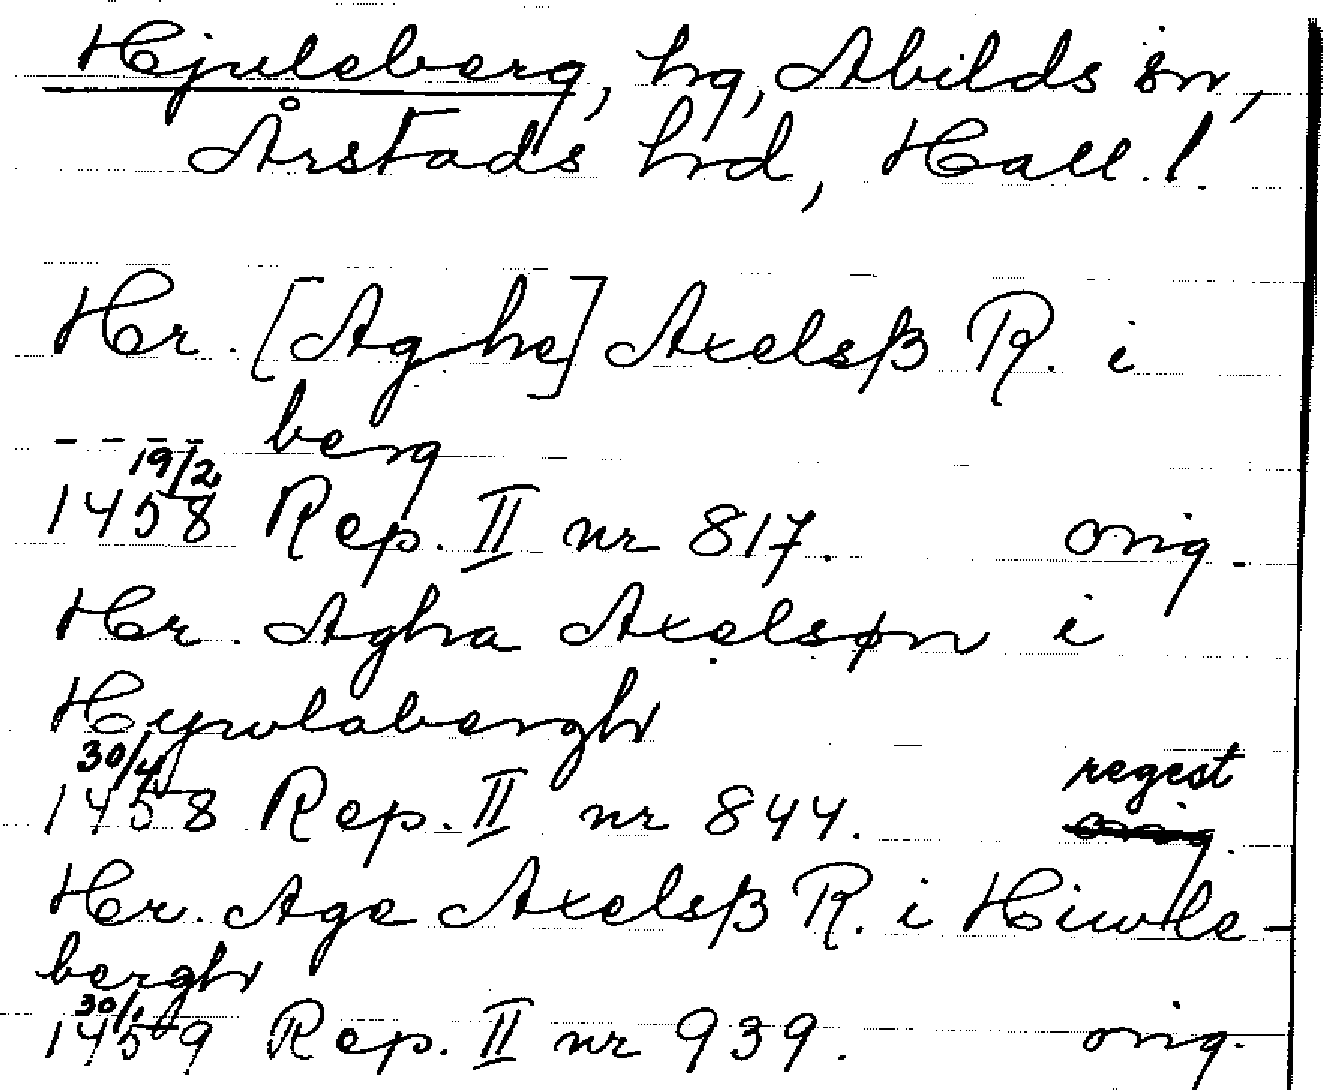 Hjuleberg, hg, Abilds sn,
Årstads hrd, Hall. l.
Hr. [Aghe] Axelsß R. i
- - - - berg
19/2
1458 Rep. II nr 817. orig.
Hr. Agha Axelsøn i
Hywlabergh
30/4 regest
1458 Rep. II nr 844.
Hr. Age Axelsß R. i Hiwle-
bergh
30/1
1459 Rep. II nr 939. orig.